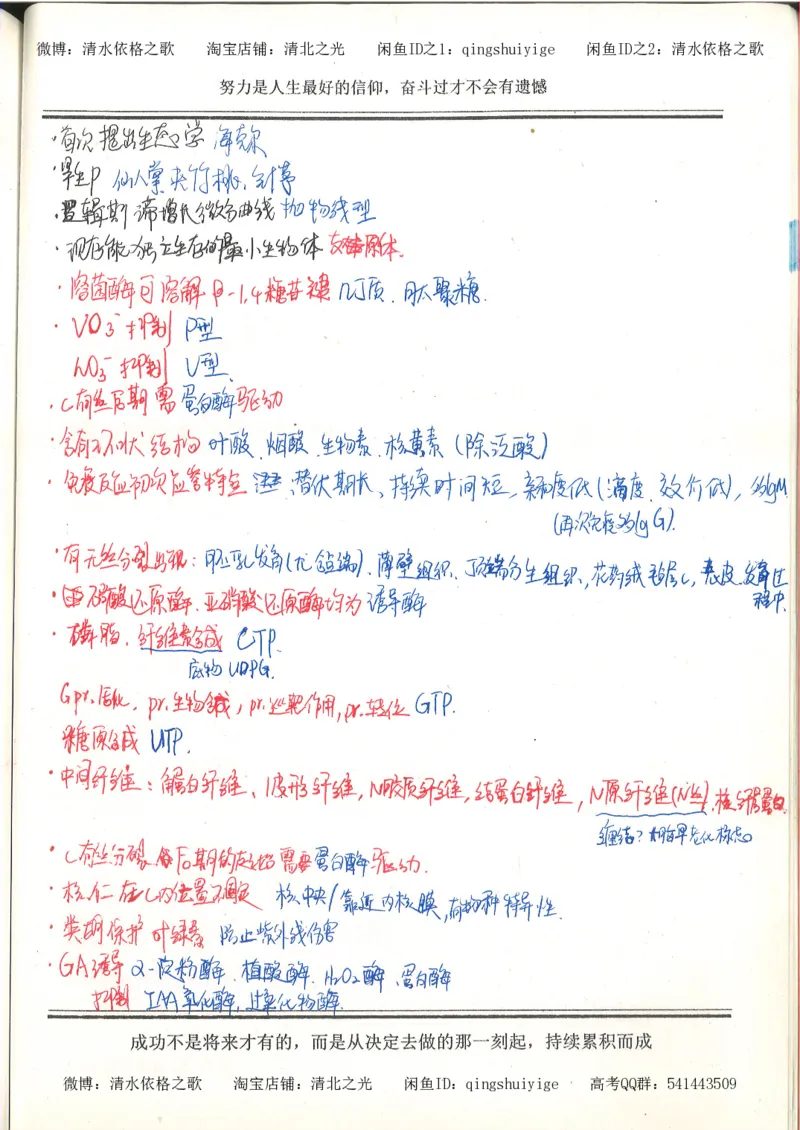 微博：清水依格之歌 淘宝店铺：清北之光 闲鱼ID之1：qingshuiyige 闲鱼ID之2：清水依格之歌
努力是人生最好的信仰，奋斗过才不会有遗憾
·首次提出生态学 海克尔
·旱生P 仙人掌 夹竹桃、
·逻辑斯谛增长微分曲线 抛物线型
·现存能独立生存的最小生物体 支原体.
·溶菌酶可溶解β-1.4糖苷键 几丁质、肽聚糖.
·VO3⁻抑制 P型
NO3⁻抑制 V型.
·C有丝后期需蛋白酶驱动
·含有环状结构 叶酸、烟酸、生物素、核黄素（除泛酸）
·免疫反应初次应答特点 潜伏期长、持续时间短，亲和度低（滴度、效价低），为IgM
（再次免疫为IgG）.
·有无丝分裂出现：胚乳发育（尤 端）、薄壁组织、顶端分生组织、花药绒毡层C，表皮、发育过
程中.
·硝酸还原酶、亚硝酸还原酶均为诱导酶
·磷脂、纤维素合成 CTP.
底物UDPG.
Gpr.活化，pr.生物合成，pr.运靶作用，pr.转位 GTP.
糖原合成 UTP.
·中间纤维：角蛋白纤维、波形纤维，N胶质纤维，结蛋白纤维，N原纤维(N丝)、核纤层蛋白.
缠结？大脑早老化标志
·C有丝分裂后期的 需要蛋白酶驱动.
·核仁在C内位置不固定 核中央/靠近内核膜，有物种特异性.
·类胡保护叶绿素 防止紫外线伤害
·GA诱导 α-淀粉酶、植酸酶、H2O2酶、蛋白酶
抑制 IAA氧化酶，过氧化物酶.
成功不是将来才有的，而是从决定去做的那一刻起，持续累积而成
微博：清水依格之歌 淘宝店铺：清北之光 闲鱼ID：qingshuiyige 高考QQ群：541443509